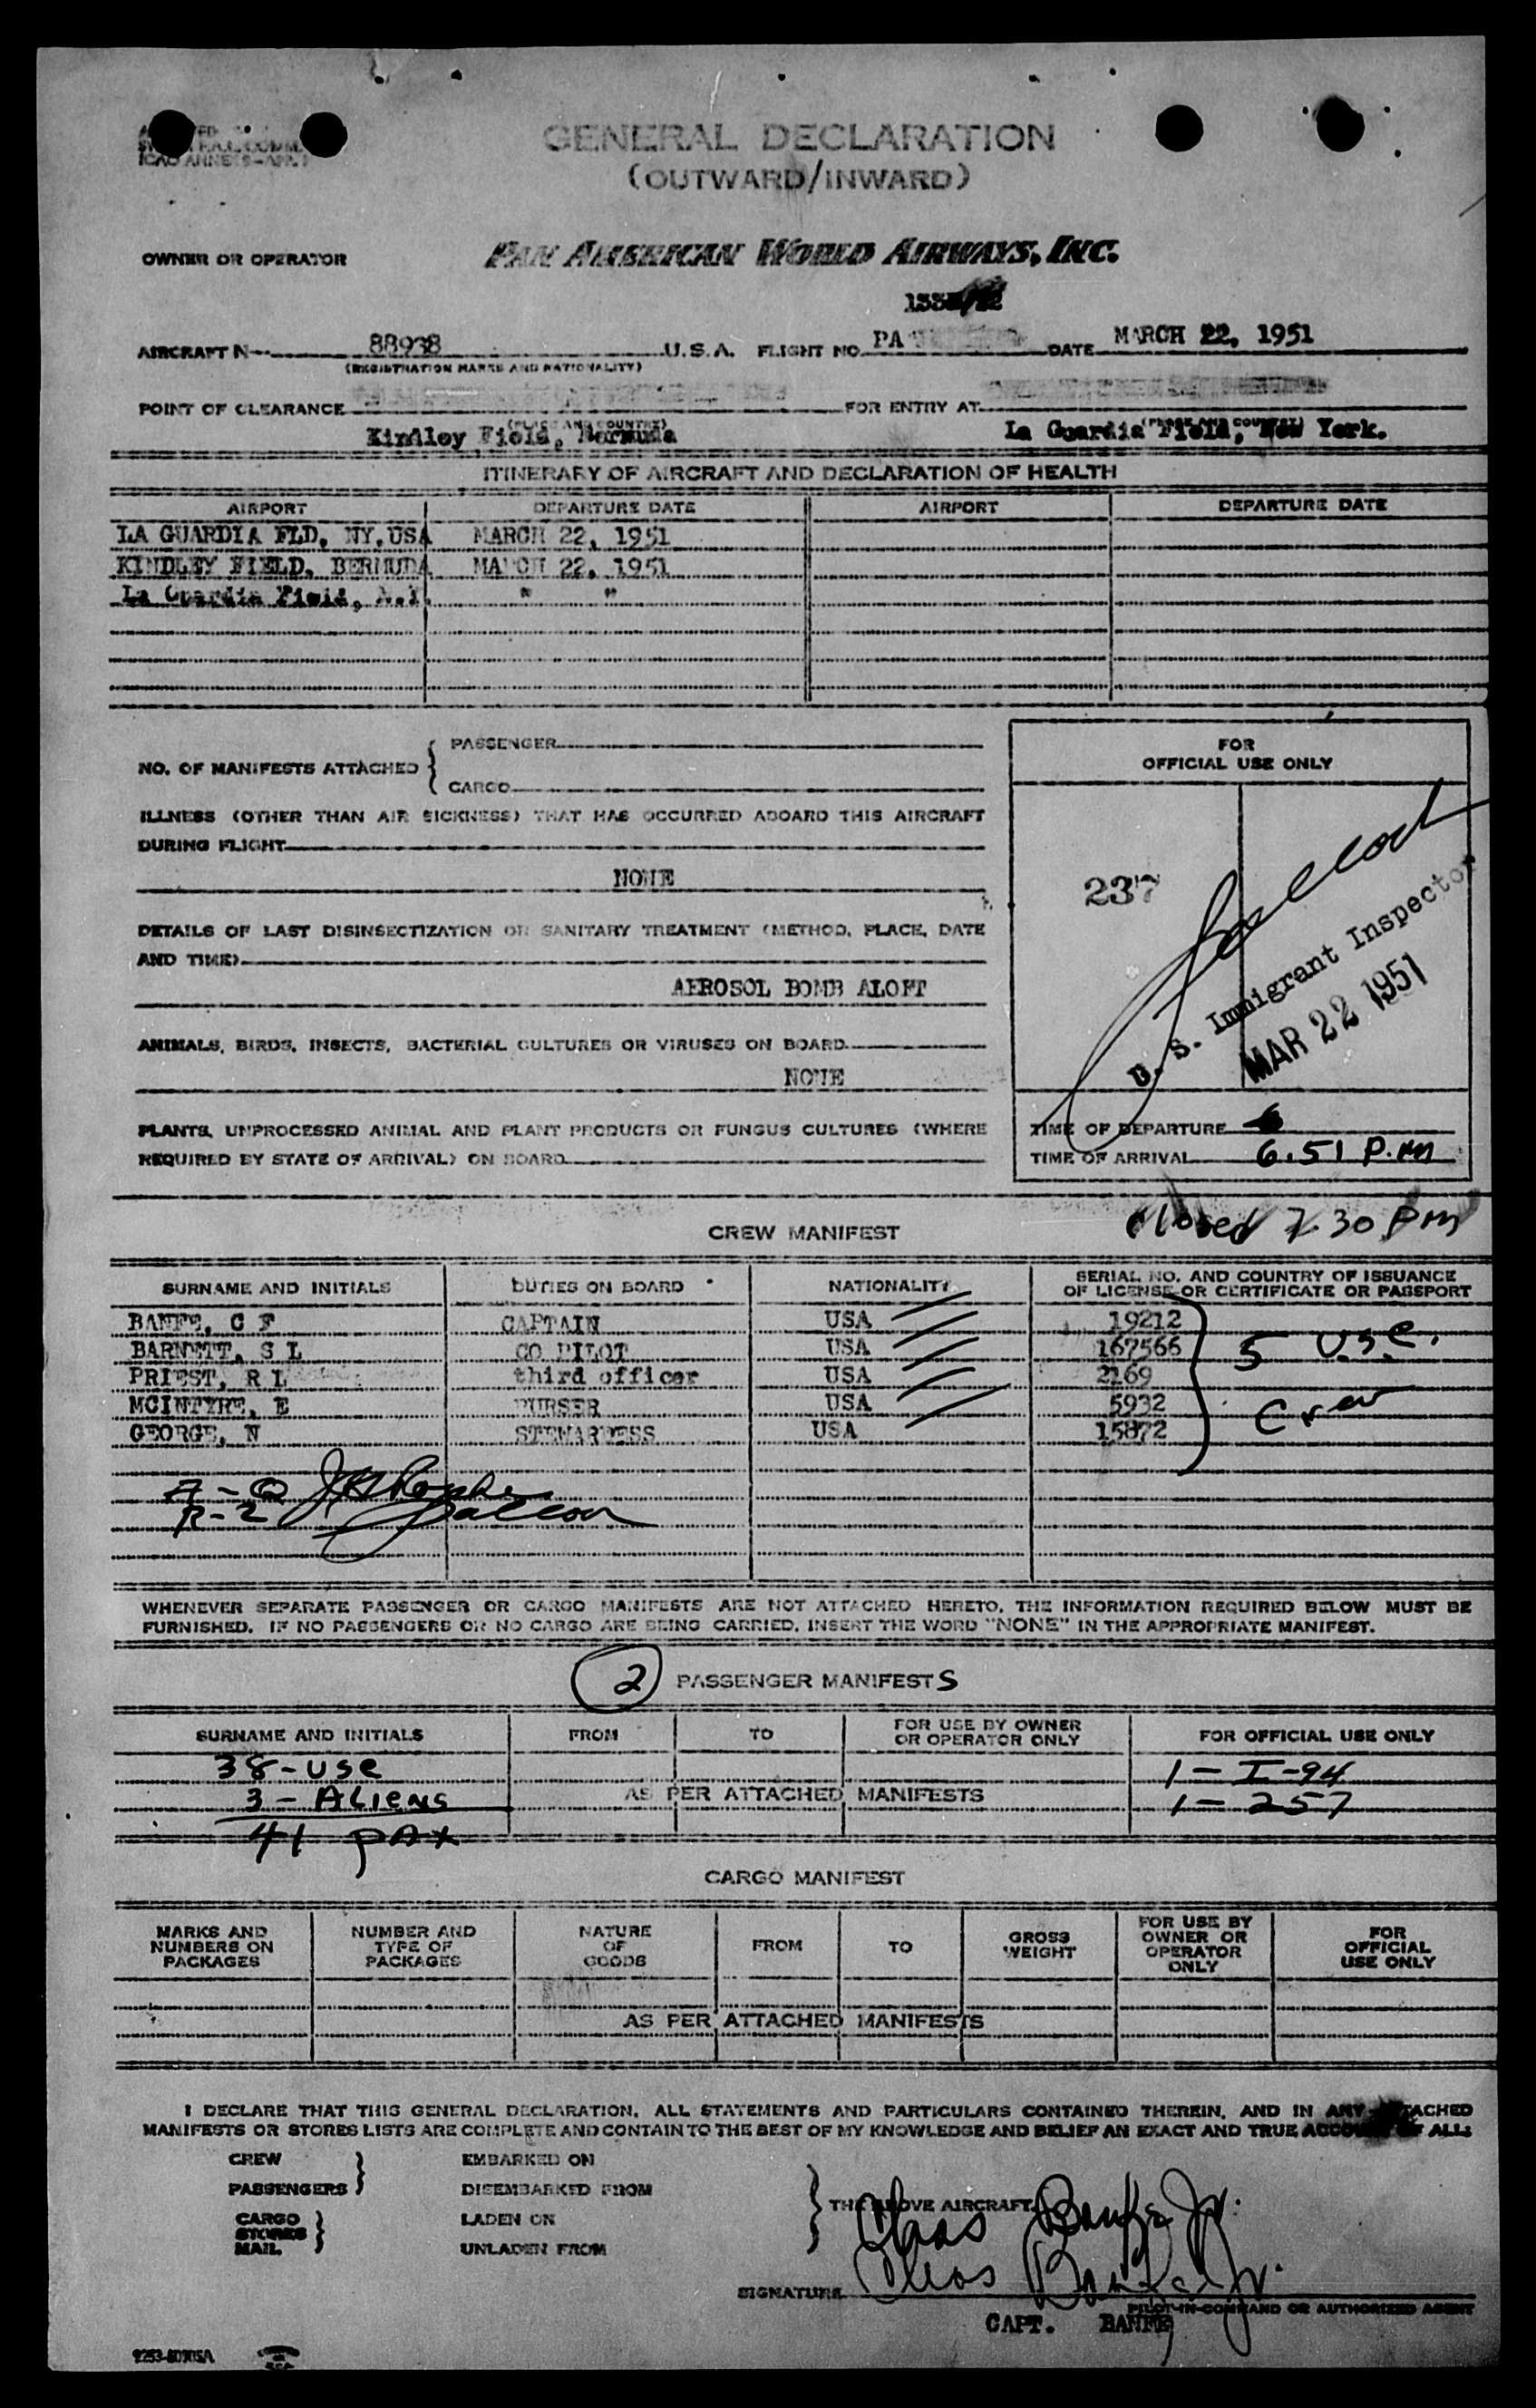 GENERAL DECLARATION
(OUTWARD/INWARD)
OWNER OR OPERATOR PAN AMERICAN WORLD AIRWAYS, INC.
AIRCRAFT N 88938 U.S.A. FLIGHT NO. PA DATE MARCH 22, 1951
(REGISTRATION MARKS AND NATIONALITY)
POINT OF CLEARANCE FOR ENTRY AT
(PLACE AND COUNTRY) (PLACE AND COUNTRY)
Kindley Field, Bermuda La Guardia Field, New York.
ITINERARY OF AIRCRAFT AND DECLARATION OF HEALTH
AIRPORT DEPARTURE DATE AIRPORT DEPARTURE DATE
LA GUARDIA FLD, NY, USA MARCH 22, 1951
KINDLEY FIELD, BERMUDA MARCH 22, 1951
La Guardia Field, N.Y. " "
NO. OF MANIFESTS ATTACHED { PASSENGER
CARGO
FOR
OFFICIAL USE ONLY
ILLNESS (OTHER THAN AIR SICKNESS) THAT HAS OCCURRED ABOARD THIS AIRCRAFT
DURING FLIGHT
NONE
237
DETAILS OF LAST DISINSECTIZATION OR SANITARY TREATMENT (METHOD, PLACE, DATE
AND TIME)
AEROSOL BOMB ALOFT
U. S. Immigrant Inspector
MAR 22 1951
ANIMALS, BIRDS, INSECTS, BACTERIAL CULTURES OR VIRUSES ON BOARD
NONE
PLANTS, UNPROCESSED ANIMAL AND PLANT PRODUCTS OR FUNGUS CULTURES (WHERE
REQUIRED BY STATE OF ARRIVAL) ON BOARD
TIME OF DEPARTURE
TIME OF ARRIVAL 6.51 P.M
Closed 7.30 PM
CREW MANIFEST
SURNAME AND INITIALS DUTIES ON BOARD NATIONALITY SERIAL NO. AND COUNTRY OF ISSUANCE
OF LICENSE OR CERTIFICATE OR PASSPORT
BANFE, C F CAPTAIN USA 19212
BARNETT, S L CO PILOT USA 167566 5 U.S.C.
PRIEST, R L third officer USA 2169
MCINTYRE, E PURSER USA 5932 Crew
GEORGE, N STEWARDESS USA 15872
R-2
WHENEVER SEPARATE PASSENGER OR CARGO MANIFESTS ARE NOT ATTACHED HERETO, THE INFORMATION REQUIRED BELOW MUST BE
FURNISHED. IF NO PASSENGERS OR NO CARGO ARE BEING CARRIED, INSERT THE WORD "NONE" IN THE APPROPRIATE MANIFEST.
2 PASSENGER MANIFESTS
SURNAME AND INITIALS FROM TO FOR USE BY OWNER
OR OPERATOR ONLY FOR OFFICIAL USE ONLY
38-USC 1 - I-94
3 - Aliens AS PER ATTACHED MANIFESTS 1 - 257
41 PAX
CARGO MANIFEST
MARKS AND
NUMBERS ON
PACKAGES
NUMBER AND
TYPE OF
PACKAGES
NATURE
OF
GOODS
FROM
TO
GROSS
WEIGHT
FOR USE BY
OWNER OR
OPERATOR
ONLY
FOR
OFFICIAL
USE ONLY
AS PER ATTACHED MANIFESTS
I DECLARE THAT THIS GENERAL DECLARATION, ALL STATEMENTS AND PARTICULARS CONTAINED THEREIN, AND IN ANY ATTACHED
MANIFESTS OR STORES LISTS ARE COMPLETE AND CONTAIN TO THE BEST OF MY KNOWLEDGE AND BELIEF AN EXACT AND TRUE ACCOUNT OF ALL:
CREW EMBARKED ON
PASSENGERS DISEMBARKED FROM
THE ABOVE AIRCRAFT Chas Banfe Jr.
CARGO LADEN ON
STORES
MAIL UNLADEN FROM
SIGNATURE Chas Banfe Jr.
PILOT-IN-COMMAND OR AUTHORIZED AGENT
CAPT. BANFE